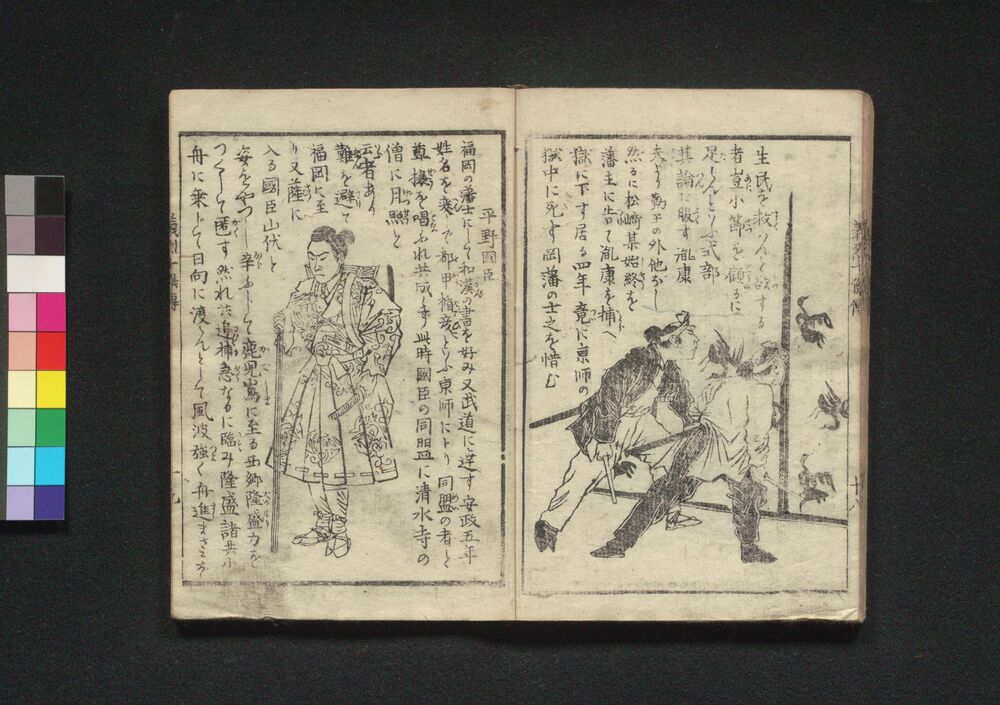 生民を救んと欲する
者豈小節を顧るに
足らんといふ式部
其論に服す胤康
夫より勤王の外他なし
然るに松崎某始終を
藩主に告て胤康を捕へ
獄に下す居る四年竟に京師の
獄中に死す岡藩の士之を惜む
平野國臣
福岡の藩士にして和漢の書を好み又武道に達す安政五年
姓名を変て都甲楯彦といふ京師に下り同盟の者と
尊攘を唱ふれ共成らず此時國臣の同盟に清水寺の
僧に月照と
云者あり
難を避て
福岡に至
り又薩に
入る國臣山伏と
姿をやつし辛ふして鹿児嶌に至る西郷隆盛力を
つくして匿す然れ共追捕急なるに臨み隆盛諸共小
舟に乗じて日向に渡らんとして風波強く舟進まざるが